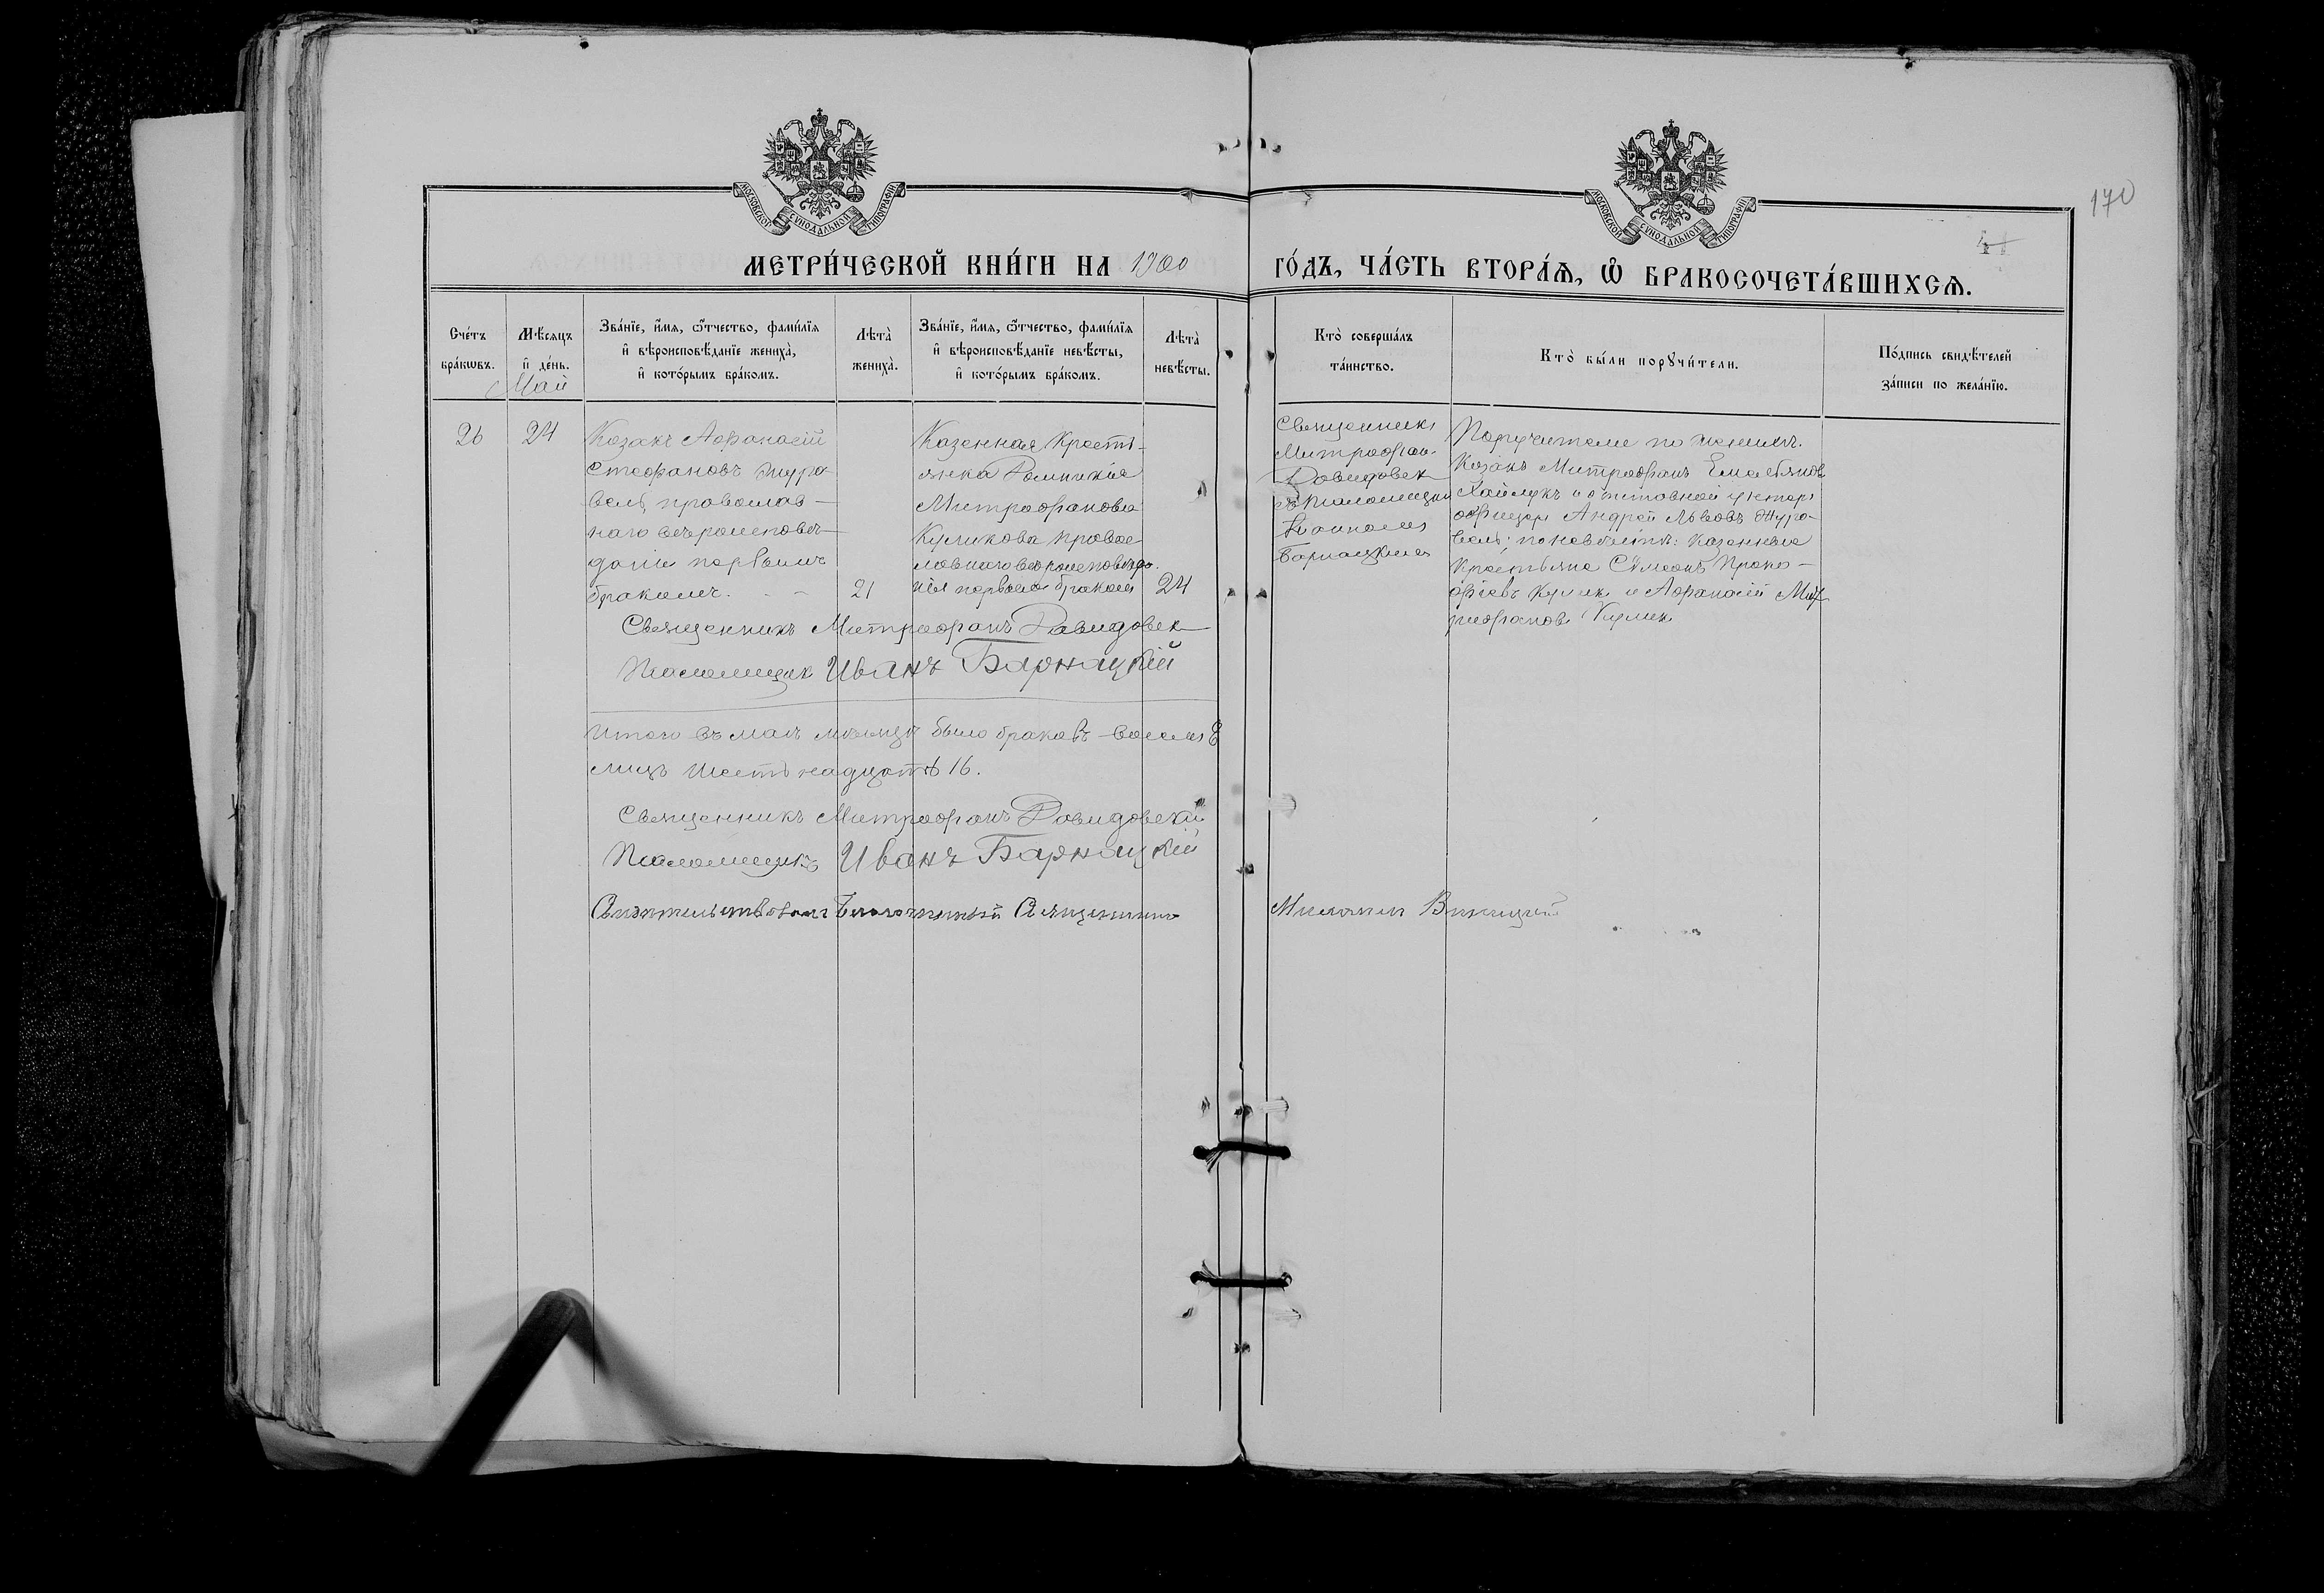 МОСКОВСКОЙ СѴНОДАЛЬНОЙ ТИПОГРАФІИ
МОСКОВСКОЙ СѴНОДАЛЬНОЙ ТИПОГРАФІИ
170
МЕТРИ́ЧЕСКОЙ КНИ́ГИ НА 1900
ГО́ДЪ, ЧА́СТЬ ВТОРА́Ѧ, Ѽ БРАКОСОЧЕТА́ВШИХСѦ.
Сче́тъ
бра́кѡвъ.
Мѣ́сяцъ
и҆ де́нь.
Май
Зва́нїе, и҆́мя, ѻ҆́тчество, фами́лїя
и҆ вѣроисповѣ́данїе жениха̀,
и҆ кото́рымъ бра́комъ.
Лѣта̀
жениха̀.
Зва́нїе, и҆́мя, ѻ҆́тчество, фами́лїя
и҆ вѣроисповѣ́данїе невѣ́сты,
и҆ кото́рымъ бра́комъ.
Лѣта̀
невѣ́сты.
Кто̀ соверша́лъ
та́инство.
Кто̀ бы́ли порꙋчи́тели.
По́дпись свидѣ́телей
за́писи по жела́нїю.
26
24
Козакъ Афанасій
Стефановъ Жура-
вель, православ-
наго вѣроисповѣ-
данія первымъ
бракомъ. - -
21
Казенная Кресть-
янка
Митрофанова
Куликова правос-
лавнаго вѣроисповѣда-
нія первымъ бракомъ
24
Священникъ
Митрофан
Давидовск
съ псаломщиком
Іоанномъ
Барнацкимъ
Поручители по женихѣ:
Козакъ Митрофанъ Емельяновъ
Хаймукъ и отставной унтеръ
офицеръ Андрей Львовъ Жура-
вель; по невѣстѣ: казенные
крестьяне Сѵмеонъ Проко-
фіевъ Кулик и Афанасій Мит
рофанов Кулик
Священникъ Митрофанъ Давидовск
Псаломщик Иванъ Барнацкій
Итого въ маѣ мѣсяцѣ было браковъ восемь 8
лицъ шестьнадцать 16.
Священникъ Митрофанъ Давидовскій
Псаломщикъ Иванъ Барнацкій
Свидѣтельствовалъ Благочинный Священникъ